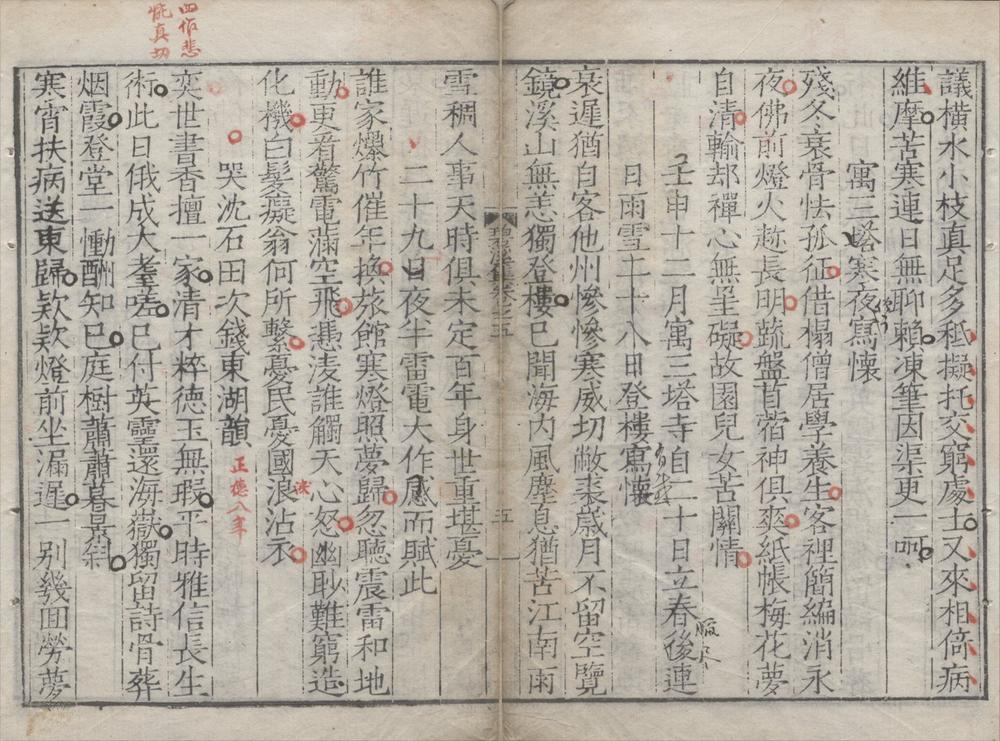 議橫水小枝真足多秪擬托交窮處士又來相倚病
維摩苦寒連日無聊賴凍筆因渠更一呵
寓三塔寒夜寫懷
殘冬衰骨怯孤征借榻僧居學養生客裡簡編消永
夜佛前燈火趂長明蔬盤苜蓿神俱爽紙帳梅花夢
自清輸却禪心無罣礙故園兒女苦關情
壬申十二月寓三塔寺自二十日立春後連
日雨雪二十八日登樓寫懷
衰遲猶自客他州慘慘寒威切敝裘歲月不留空覽
鏡溪山無恙獨登樓已聞海內風塵息猶苦江南雨
五
雪稠人事天時俱未定百年身世重堪憂
二十九日夜半雷電大作感而賦此
誰家爆竹催年換旅館寒燈照夢歸忽聽震雷和地
動更看驚電滿空飛憑淩誰觸天心怒幽眇難窮造
化機白髮癡翁何所繫憂民憂國浪沾衣
哭沈石田次錢東湖韻
正德八年
奕世書香擅一家清才粹德玉無瑕平時雅信長生
術此日俄成大耋嗟已付英靈還海嶽獨留詩骨葬
烟霞登堂一慟酬知已庭樹蕭蕭暮景斜
寒宵扶病送東歸欵欵燈前坐漏遲一別幾回勞夢